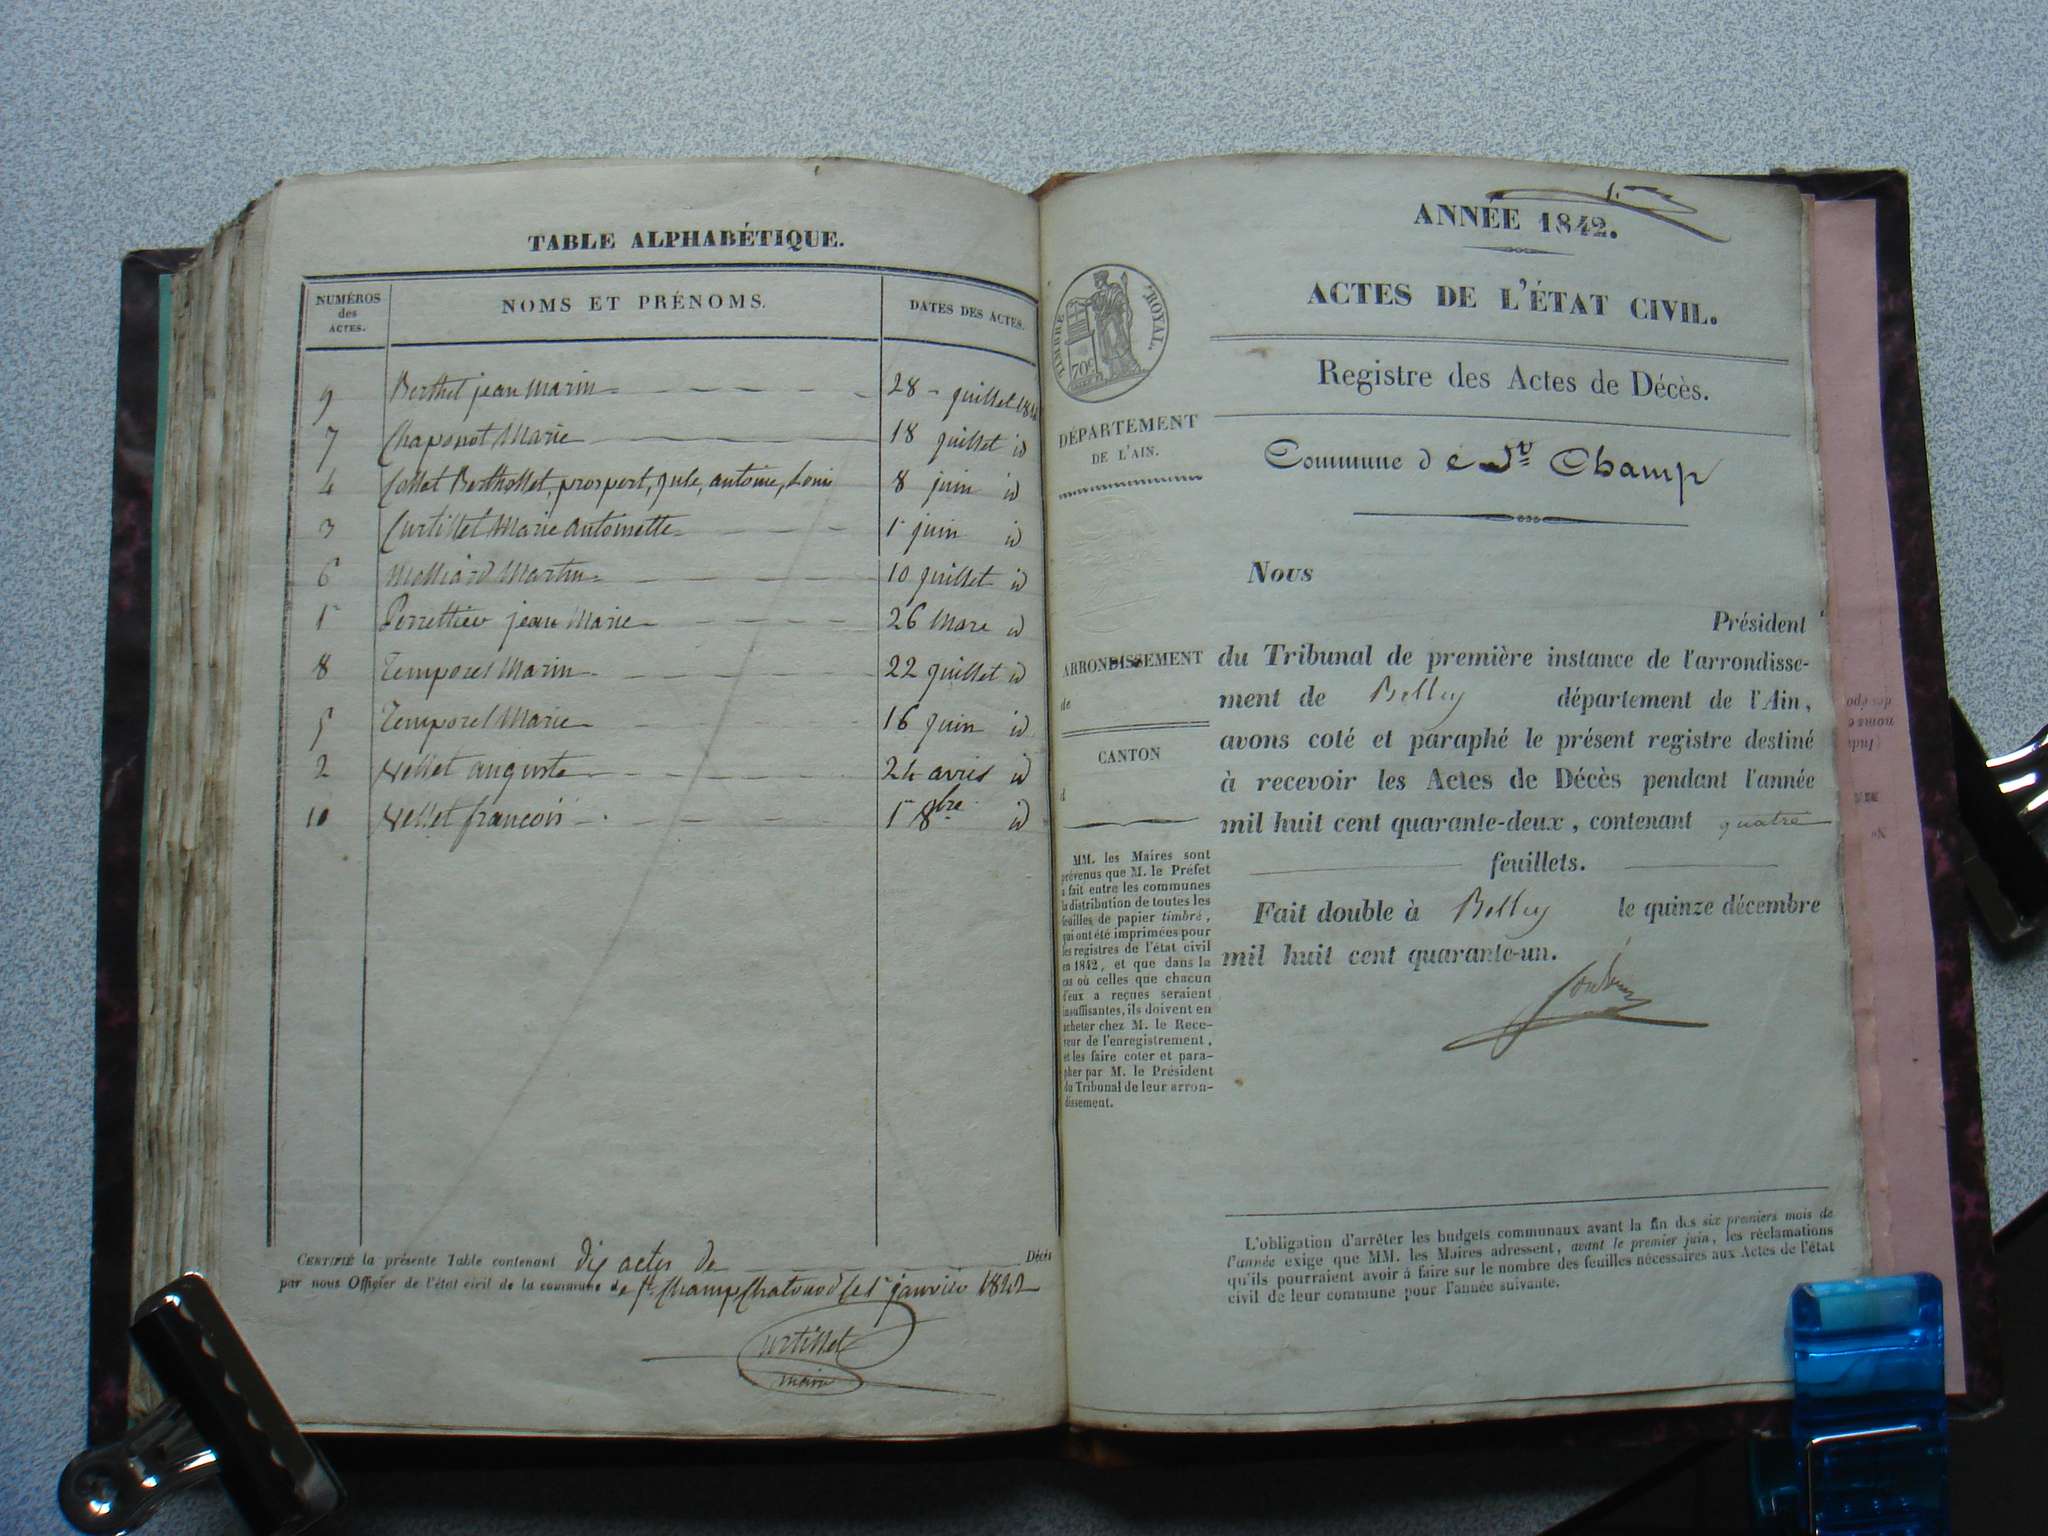 TABLE ALPHABÉTIQUE.
NUMÉROS des ACTES. NOMS ET PRÉNOMS. DATES DES ACTES.
9 Berthet jean Marin 28 juillet
7 Chaponot Marie 18 juillet id
4 Collet Berthollet, prospert, jule, antoine, Loui 8 juin id
3 Curtillet Marie Antoinette 1r juin id
6 Molliard Martin 10 juillet id
1r Perrettier jean Marie 26 Mars id
8 Temporel Marin 22 juillet id
5 Temporel Marie 16 juin id
2 Vellet auguste 24 avril id
10 Vellet françois 1r 8bre id
CERTIFIÉ la présente Table contenant dix actes de Décès
par nous Officier de l'état civil de la commune de St. Champ Chatonod le 1r janvier 1842
Curtillet
maire
1.
ANNÉE 1842.
ACTES DE L'ÉTAT CIVIL.
Registre des Actes de Décès.
Commune de St Champ
TIMBRE ROYAL.
70c
DÉPARTEMENT
DE L'AIN.
ARRONDISSEMENT
de
CANTON
d
MM. les Maires sont
prévenus que M. le Préfet
a fait entre les communes
la distribution de toutes les
feuilles de papier timbré,
qui ont été imprimées pour
les registres de l'état civil
en 1842, et que dans la
cas où celles que chacun
d'eux a reçues seraient
insuffisantes, ils doivent en
acheter chez M. le Rece-
veur de l'enregistrement,
et les faire coter et para-
pher par M. le Président
du Tribunal de leur arron-
dissement.
Nous
Président
du Tribunal de première instance de l'arrondisse-
ment de Belley département de l'Ain,
avons coté et paraphé le présent registre destiné
à recevoir les Actes de Décès pendant l'année
mil huit cent quarante-deux, contenant quatre
feuillets.
Fait double à Belley le quinze décembre
mil huit cent quarante-un.
L'obligation d'arrêter les budgets communaux avant la fin des six premiers mois de
l'année exige que MM. les Maires adressent, avant le premier juin, les réclamations
qu'ils pourraient avoir à faire sur le nombre des feuilles nécessaires aux Actes de l'état
civil de leur commune pour l'année suivante.